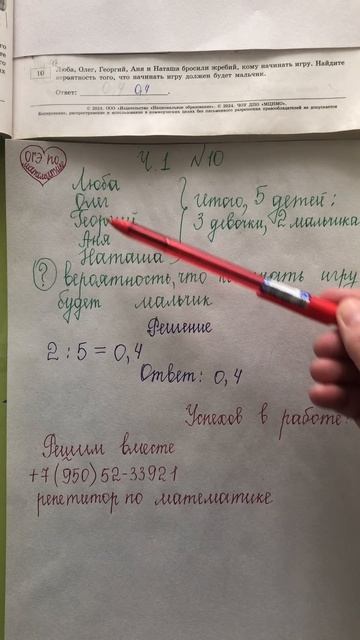 10
Люба, Олег, Георгий, Аня и Наташа бросили жребий, кому начинать игру. Найдите
вероятность того, что начинать игру должен будет мальчик.
Ответ: 0,4.
© 2024. ООО «Издательство «Национальное образование». © 2024. ФГБНУ «ФИПИ»
Копирование, распространение и использование в коммерческих целях без письменного разрешения правообладателя не допускается
ОГЭ по математике
Ч.1 №10
Люба
Олег
Георгий
Аня
Наташа
Итого, 5 детей:
3 девочки, 2 мальчика
? вероятность, что начинать игру
будет мальчик
Решение
2 : 5 = 0,4
Ответ: 0,4
Успехов в работе!
Решим вместе
+7(950)52-33921
репетитор по математике